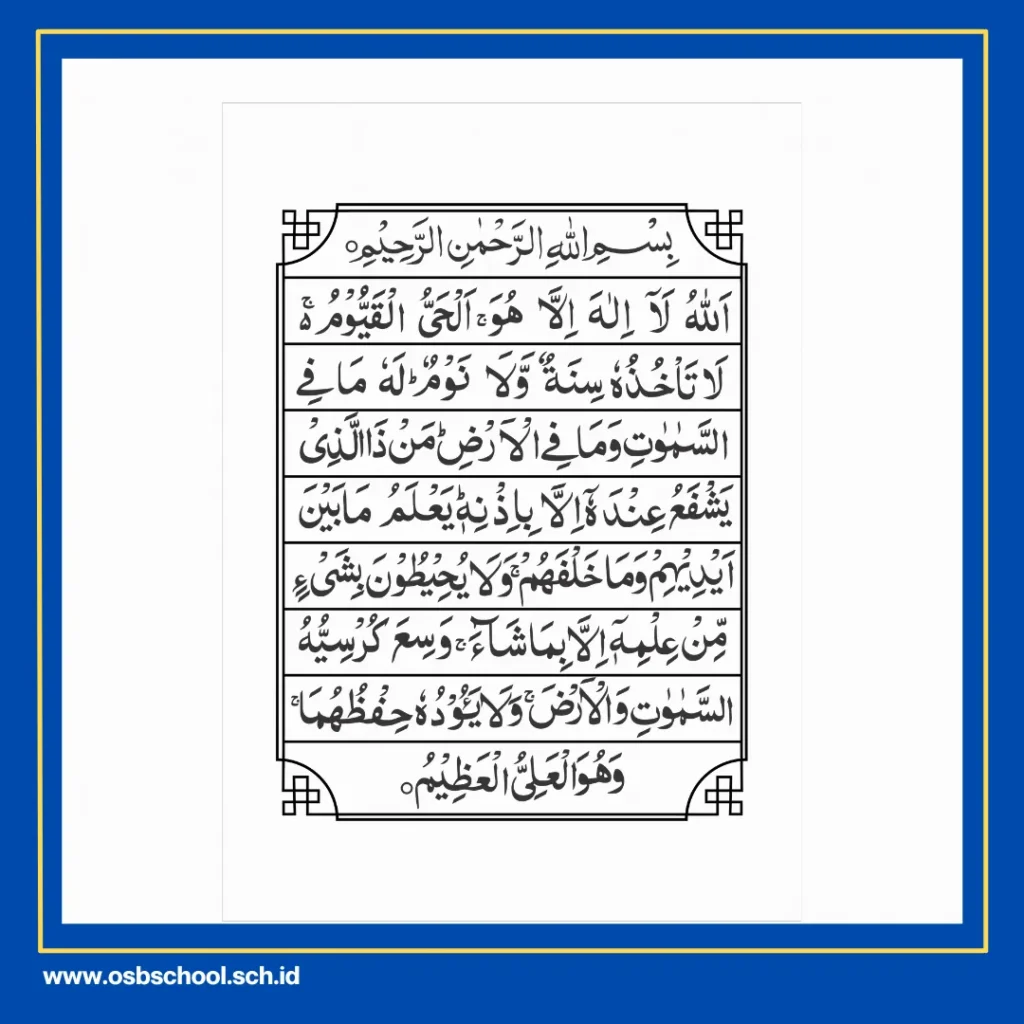 بِسْــمِ اللّٰهِ الرَّحْمٰنِ الرَّحِيْمِ○
اَللّٰهُ لَآ اِلٰهَ اِلَّا هُوَۚ اَلْحَيُّ الْقَيُّوْمُ ەۚ
لَا تَأْخُذُهٗ سِنَةٌ وَّلَا نَوْمٌۗ لَهٗ مَا فِي
السَّمٰوٰتِ وَمَا فِي الْاَرْضِۗ مَنْ ذَا الَّذِيْ
يَشْفَعُ عِنْدَهٗٓ اِلَّا بِاِذْنِهٖۗ يَعْلَمُ مَا بَيْنَ
اَيْدِيْهِمْ وَمَا خَلْفَهُمْۚ وَلَا يُحِيْطُوْنَ بِشَيْءٍ
مِّنْ عِلْمِهٖٓ اِلَّا بِمَا شَاۤءَۚ وَسِعَ كُرْسِيُّهُ
السَّمٰوٰتِ وَالْاَرْضَۚ وَلَا يَـُٔوْدُهٗ حِفْظُهُمَاۚ
وَهُوَ الْعَلِيُّ الْعَظِيْمُ○
www.osbschool.sch.id